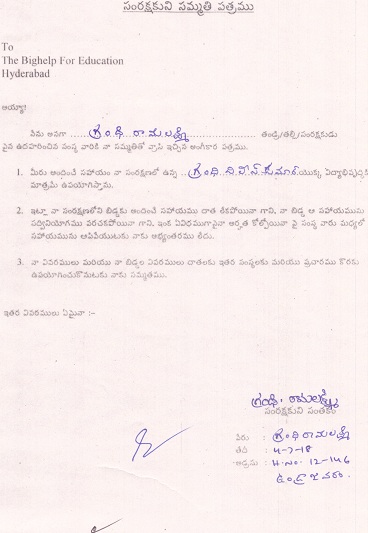 సంరక్షకుని సమ్మతి పత్రము
To
The Bighelp For Education
Hyderabad
అయ్యా!
నేను అనగా ....గ్రంధి రామలక్ష్మి.... తండ్రి/తల్లి/సంరక్షకుడు
పైన ఉదహరించిన సంస్థ వారికి నా సమ్మతితో వ్రాసి ఇచ్చిన అంగీకార పత్రము.
1. మీరు అందించే సహాయం నా సంరక్షణలో ఉన్న ..గ్రంధి. కుమార్..యొక్క విద్యాభివృద్ధికి
మాత్రమే ఉపయోగిస్తాను.
2. ఇట్లా నా సంరక్షణలోని బిడ్డకు అందించే సహాయము దాత లేకపోయినా గాని, నా బిడ్డ ఆ సహాయమును
సద్వినియోగము పరచకపోయినా గాని, ఇంక ఏవిధముగానైనా అర్హత కోల్పోయినా పై సంస్థ వారు మధ్యలో
సహాయమును ఆపివేయుటకు నాకు అభ్యంతరము లేదు.
3. నా వివరములు మరియు నా బిడ్డల వివరములు దాతలకు ఇతర సంస్థలకు మరియు ప్రచారము కొరకు
ఉపయోగించుకొనుటకు నాకు సమ్మతము.
ఇతర వివరములు ఏమైనా :-
గ్రంధి. రామలక్ష్మి
సంరక్షకుని సంతకం
పేరు : గ్రంధి రామలక్ష్మి
తేది : 4-7-18
అడ్రసు : H.NO. 12-146
ఉండ్రాజవరం.